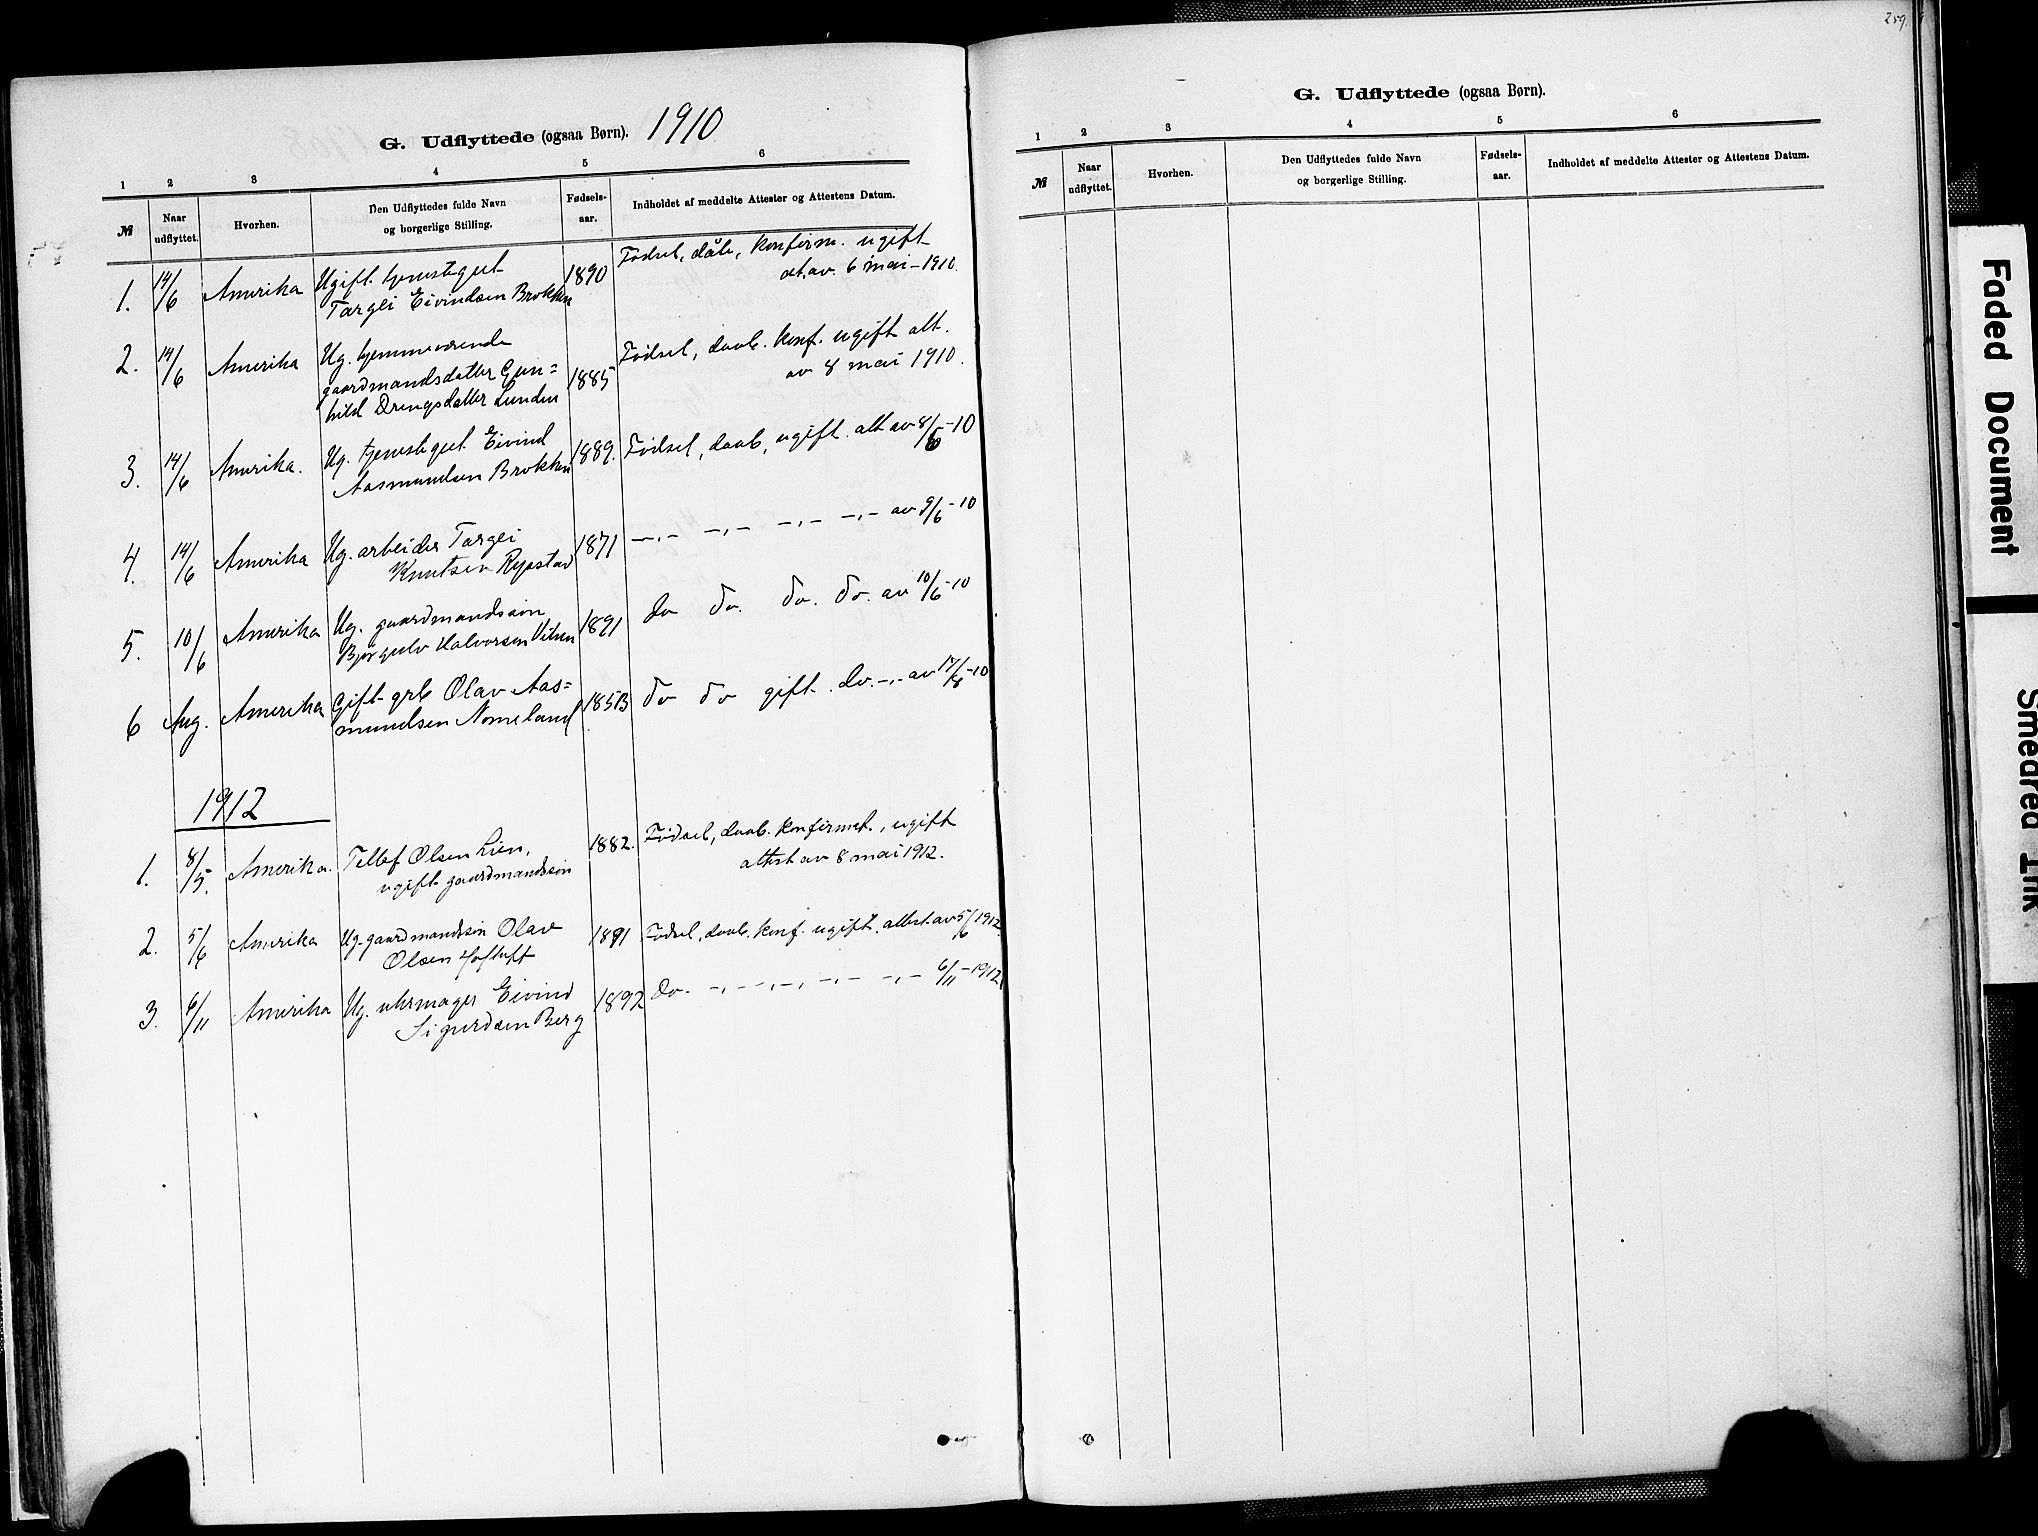 259.
G. Udflyttede (ogsaa Børn). 1910
1 2 3 4 5 6
№ Naar udflyttet. Hvorhen. Den Udflyttedes fulde Navn og borgerlige Stilling. Fødsels-aar. Indholdet af meddelte Attester og Attestens Datum.
1. 14/6 Amerika Ugift tjenestegut 1890 Fødsel, dåb, konfirm. ugift
Targei Eivindsen Brokken att. av 6 mai - 1910.
2. 14/6 Amerika Ug. hjemmeværende Fødsel, daab. konf. ugift att.
gaardmandsdatter Gun= 1885 av 8 mai 1910.
hild Drengsdatter Lunden
3. 14/6 Amerika. Ug. tjenestegut Eivind 1889. Fødsel, daab, ugift. att av 8/6-10
Aasmundsen Brokken
4. 14/6 Amerika Ug. arbeider Targei 1871 -„- -„- -„- -„- av 9/6-10
Knutsen Rysstad
5. 10/6 Amerika Ug. gaardmandssøn 1891 do do. do. do. av 10/6-10
Bjørgulv Halvorsen
6 Aug. Amerika Gift grb Olav Aas= 1853 do do gift. do. -„- av 17/8-10
mundsen Nomeland
1912
1. 8/5. Amerika. Tellef Olsen Lien, 1882. Fødsel, daab. konfirmat., ugift
ugift gaardmandssøn attest av 8 mai 1912.
2. 5/6 Amerika Ug. gaardmandssøn Olav 1891 Fødsel, daab. konf. ugift. attest. av 5/6 1912.
Olsen Hoftuft
3. 6/11 Amerika Ug. uhrmager Eivind 1892 do. -„- -„- -„- -„- 6/11-1912
Sigurdsen Berg
G. Udflyttede (ogsaa Børn).
1 2 3 4 5 6
№ Naar udflyttet. Hvorhen. Den Udflyttedes fulde Navn og borgerlige Stilling. Fødsels-aar. Indholdet af meddelte Attester og Attestens Datum.
Faded Document
Smeared Ink